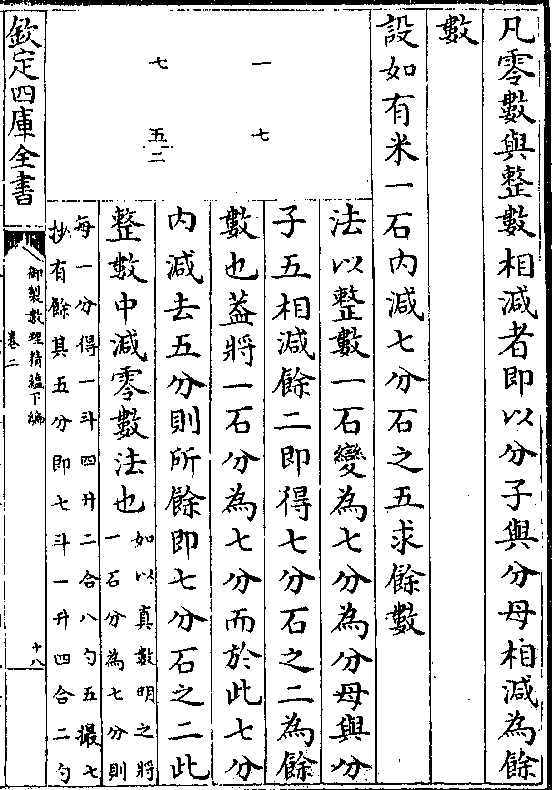 凡零數與整數相減者即以分子與分母相減為餘
數
設如有米一石內減七分石之五求餘數
法以整數一石變為七分為分母與分
子五相減餘二即得七分石之二為餘
數也葢將一石分為七分而於此七分
內減去五分則所餘即七分石之二此
整數中減零數法也
如以真數明之將
一石分為七分則
每一分得一斗四升二合八勺五撮七
抄有餘其五分即七斗一升四合二勺
一 七
七 五二
欽定四庫全書
御製數理精蘊下編
卷二
十八